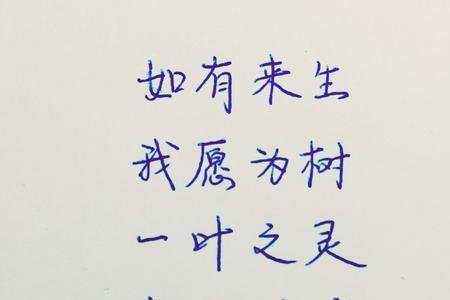 如有来生
我愿为树
一叶之灵